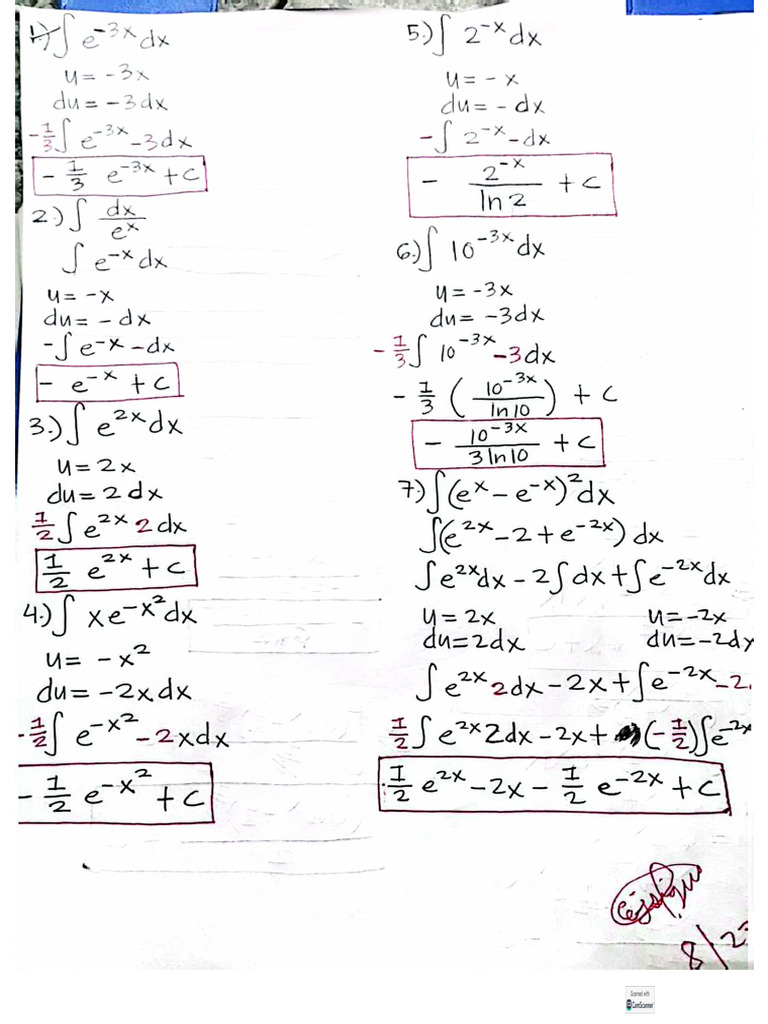 1.) ∫ e^-3x dx
u = -3x
du = -3dx
-1/3 ∫ e^-3x -3dx
-1/3 e^-3x + C
2.) ∫ dx/e^x
∫ e^-x dx
u = -x
du = -dx
-∫ e^-x -dx
- e^-x + C
3.) ∫ e^2x dx
u = 2x
du = 2dx
1/2 ∫ e^2x 2dx
1/2 e^2x + C
4.) ∫ xe^-x² dx
u = -x²
du = -2xdx
-1/2 ∫ e^-x² -2xdx
-1/2 e^-x² + C
5.) ∫ 2^-x dx
u = -x
du = -dx
-∫ 2^-x -dx
- 2^-x/ln 2 + C
6.) ∫ 10^-3x dx
u = -3x
du = -3dx
-1/3 ∫ 10^-3x -3dx
-1/3 (10^-3x/ln 10) + C
- 10^-3x/3 ln 10 + C
7.) ∫(e^x - e^-x)² dx
∫(e^2x - 2 + e^-2x) dx
∫e^2x dx - 2∫dx + ∫e^-2x dx
u = 2x u = -2x
du = 2dx du = -2dx
∫e^2x 2dx - 2x + ∫e^-2x -2
1/2 ∫e^2x 2dx - 2x + (-1/2)∫e^-2x
1/2 e^2x - 2x - 1/2 e^-2x + C
8/2
Scanned with
CamScanner